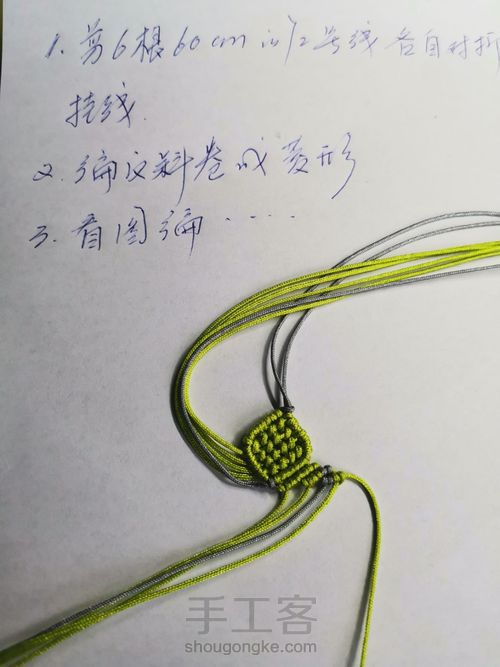 1. 剪6根60cm的72号线各自对折
挂线.
2. 编反斜卷成菱形
3. 看图编.....
手工客
shougongke.com